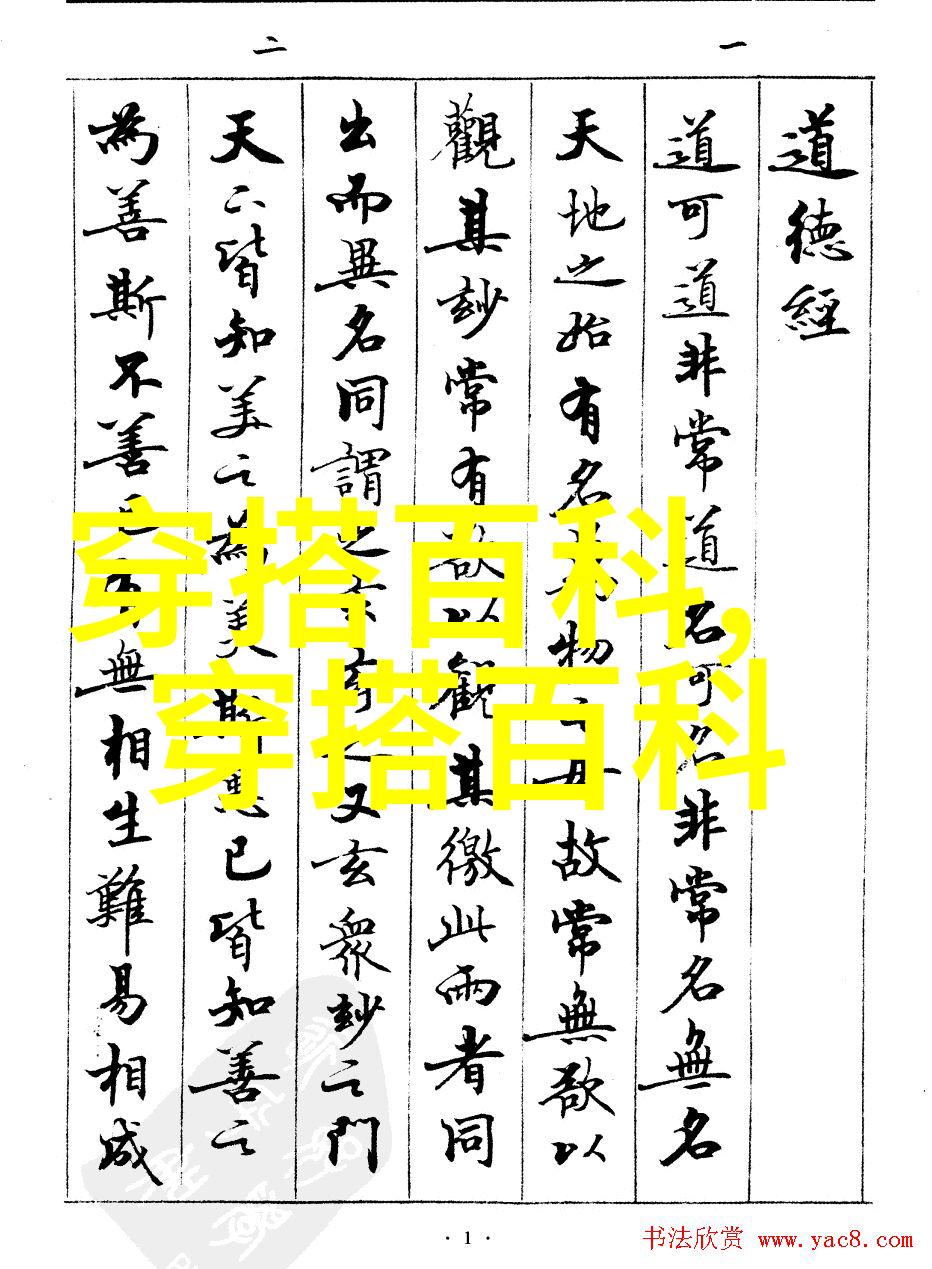 一
二
道德經
道可道非常道名可名非常名無名
天地之始有名萬物之母故常無欲以
觀其玅常有欲以觀其徼此兩者同
出而異名同謂之玄玄之又玄眾玅之門
天下皆知美之為美斯惡已皆知善之
為善斯不善已有無相生難易相成
穿搭百科,
穿搭百科
· 1 ·
书法欣赏 www.yac8.com